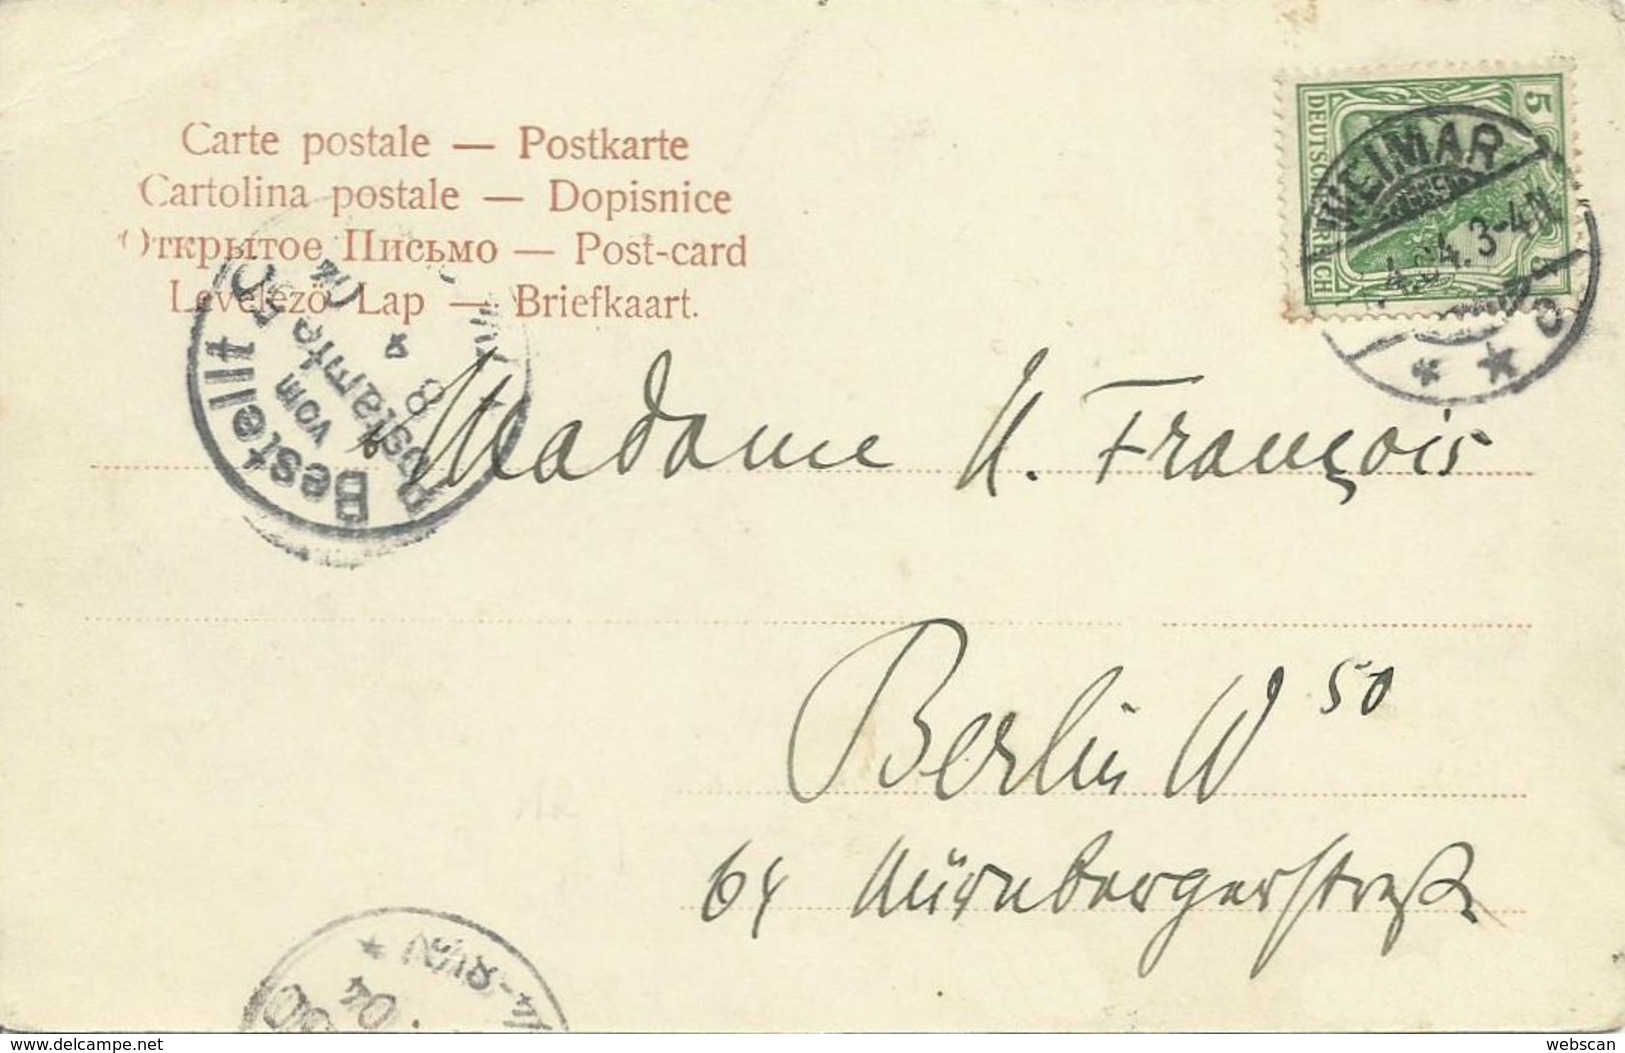 Carte postale — Postkarte
Cartolina postale — Dopisnice
Открытое Письмо — Post-card
Levelező Lap — Briefkaart.
5
DEUTSCHES REICH
5
WEIMAR
4.04. 3-4N
Bestellt
vom
Postamte
8
Madame M. François
Berlin W 50
64 Nürnbergerstraße
04
delcampe.net
webscan